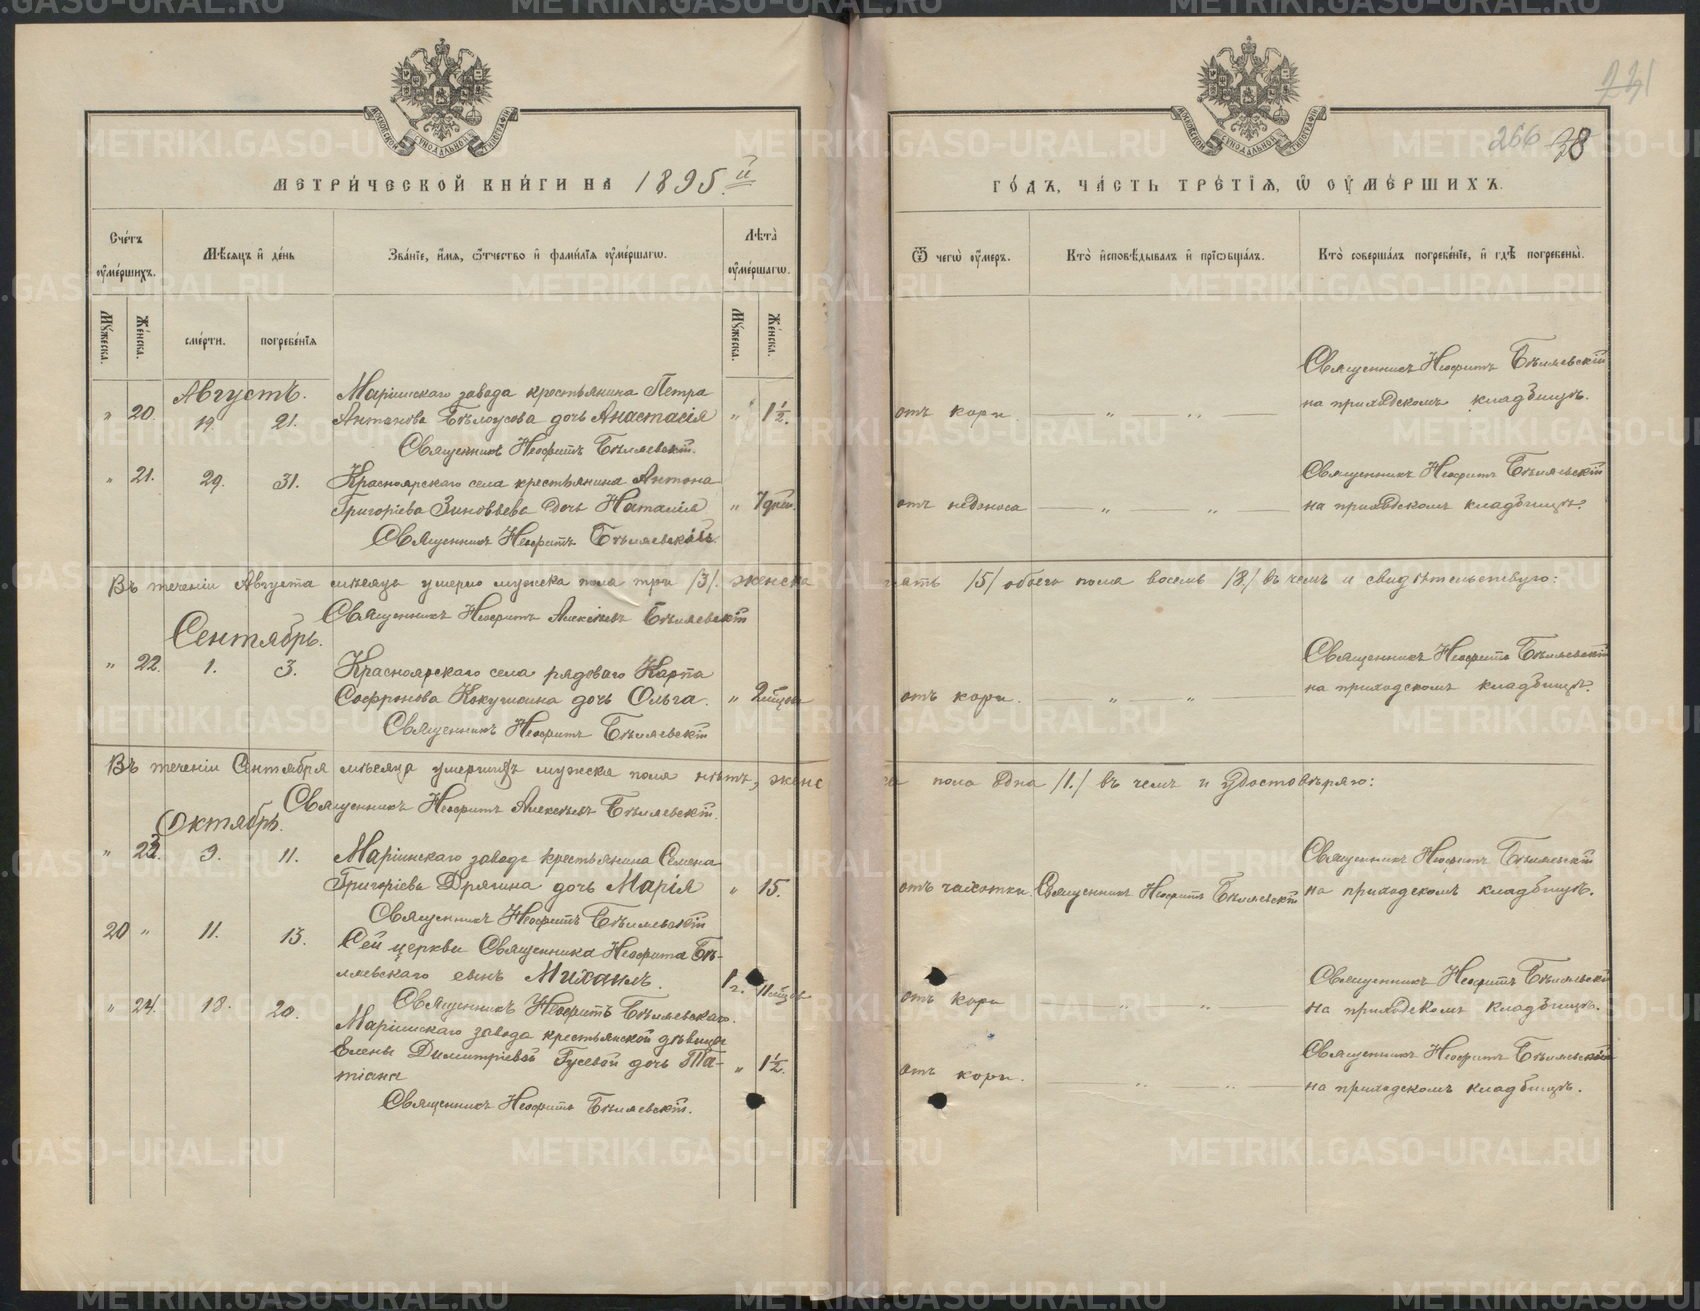 МЕТРИ́ЧЕСКОЙ КНИ́ГИ НА 1895й
ГО́ДЪ, ЧА́СТЬ ТРЕ́ТІѦ, Ѡ ОУ҆МЕ́РШИХЪ.
266 38
Сче́тъ оу҆ме́ршихъ.
Мѣ́сяцъ и҆ де́нь
Зва́нїе, и҆́мѧ, ѻ҆́тчество и҆ фами́лїѧ оу҆ме́ршагѡ.
Лѣта̀ оу҆ме́ршагѡ.
Ѿ чегѡ̀ оу҆́меръ.
Кто̀ и҆сповѣ́дывалъ и҆ прїѡбща́лъ.
Кто̀ соверша́лъ погребе́нїе, и҆ гдѣ̀ погребены̀.
Мꙋ́жеска.
Же́нска.
сме́рти.
погребе́нїѧ
Мꙋ́жеска.
Же́нска.
Августъ.
" 20. 19. 21. Маріинскаго завода крестьянина Петра
Антонова Бѣлоусова дочь Анастасія " 1½.
Священникъ Неофитъ Бѣляевскій.
отъ кори " "
Священникъ Неофитъ Бѣляевскій
на приходскомъ кладбищѣ.
" 21. 29. 31. Красноярскаго села крестьянина Антона
Григоріева Зиновьева дочь Наталія " 7 дней.
Священникъ Неофитъ Бѣляевскій.
отъ недоноса " "
Священникъ Неофитъ Бѣляевскій
на приходскомъ кладбищѣ.
Въ теченіи Августа мѣсяца умерло мужска пола три /3/. женска пять /5/ обоего пола восемь /8./ въ чемъ и свидѣтельствую:
Священникъ Неофитъ Алексѣевъ Бѣляевскій
Сентябрь.
" 22. 1. 3. Красноярскаго села рядоваго Карпа
Софронова Кокушкина дочь Ольга. " 2 мѣсяца
Священникъ Неофитъ Бѣляевскій
отъ кори. " "
Священникъ Неофитъ Бѣляевскій
на приходскомъ кладбищѣ.
Въ теченіи Сентября мѣсяца умершихъ мужска пола нѣтъ, женска пола одна /1./ въ чемъ и удостовѣряю:
Священникъ Неофитъ Алексѣевъ Бѣляевскій.
Октябрь.
" 23. 9. 11. Маріинскаго завода крестьянина Семена
Григоріева Дрягина дочь Марія " 15.
Священникъ Неофитъ Бѣляевскій
отъ чахотки. Священникъ Неофитъ Бѣляевскій
Священникъ Неофитъ Бѣляевскій
на приходскомъ кладбищѣ.
20 " 11. 13. Сей церкви Священника Неофита Бѣ-
ляевскаго сынъ Михаилъ. 1 г. 11 мѣсяц.
Священникъ Неофитъ Бѣляевскаго.
отъ кори " "
Священникъ Неофитъ Бѣляевскій
на приходскомъ кладбищѣ.
" 24. 18. 20. Маріинскаго завода крестьянской дѣвицы
Елены Димитріевой Гусевой дочь Та-
тіана " 1½.
Священникъ Неофитъ Бѣляевскій.
отъ кори. " "
Священникъ Неофитъ Бѣляевскій
на приходскомъ кладбищѣ.
METRIKI.GASO-URAL.RU